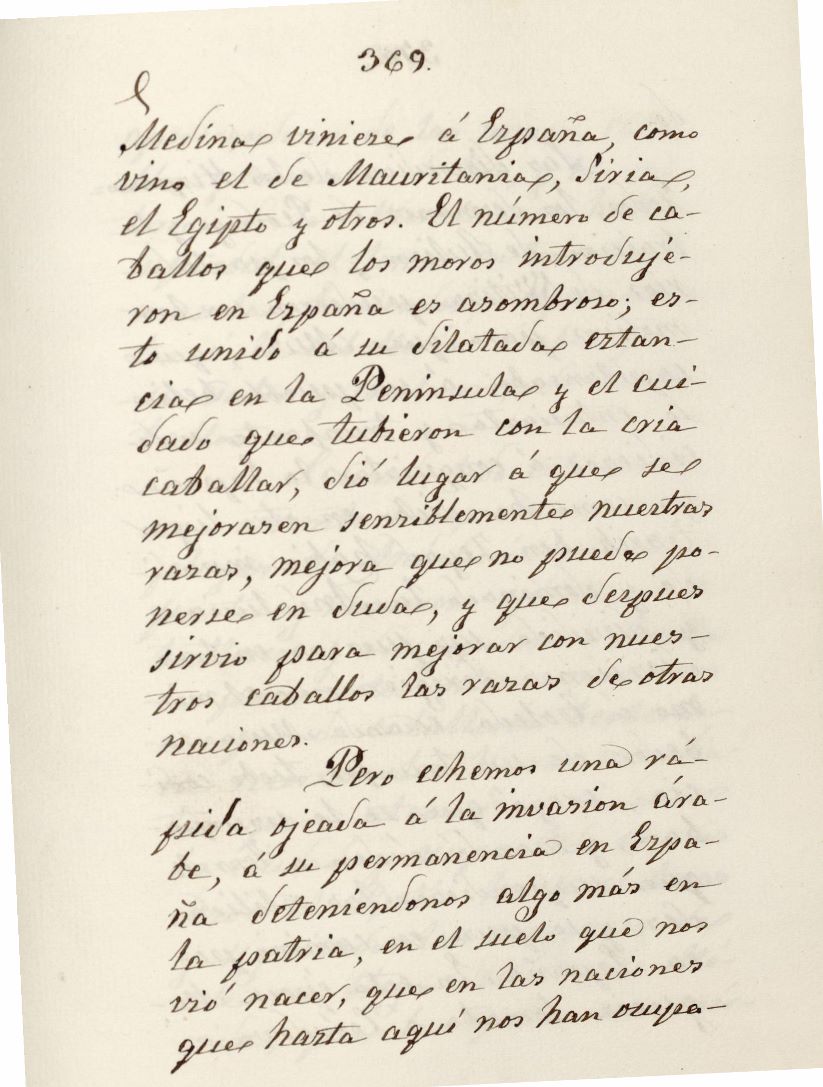 369.
Medina viniese á España, como
vino el de Mauritania, Siria,
el Egipto y otros. El número de ca-
ballos que los moros introduje-
ron en España es asombroso; es-
to unido á su dilatada estan-
cia en la Peninsula y el cui-
dado que tubieron con la cria
caballar, dió lugar á que se
mejorasen sensiblemente nuestras
razas, mejora que no puede po-
nerse en duda, y que despues
sirvio para mejorar con nues-
tros caballos las razas de otras
naciones.
Pero echemos una rá-
pida ojeada á la invasion ára-
be, á su permanencia en Espa-
ña deteniendonos algo más en
la patria, en el suelo que nos
vió nacer, que en las naciones
que hasta aquí nos han ocupa-